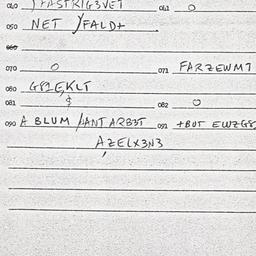 040 )FASTRIG3VET 041 O
050 NET )FALD+
060
070 O 071 FARZEWM7
080 G81EKLT
081 $ 082 O
090 A BLUM /ANT ARB3T 091 +BUT EWZG8
AZELX3N3